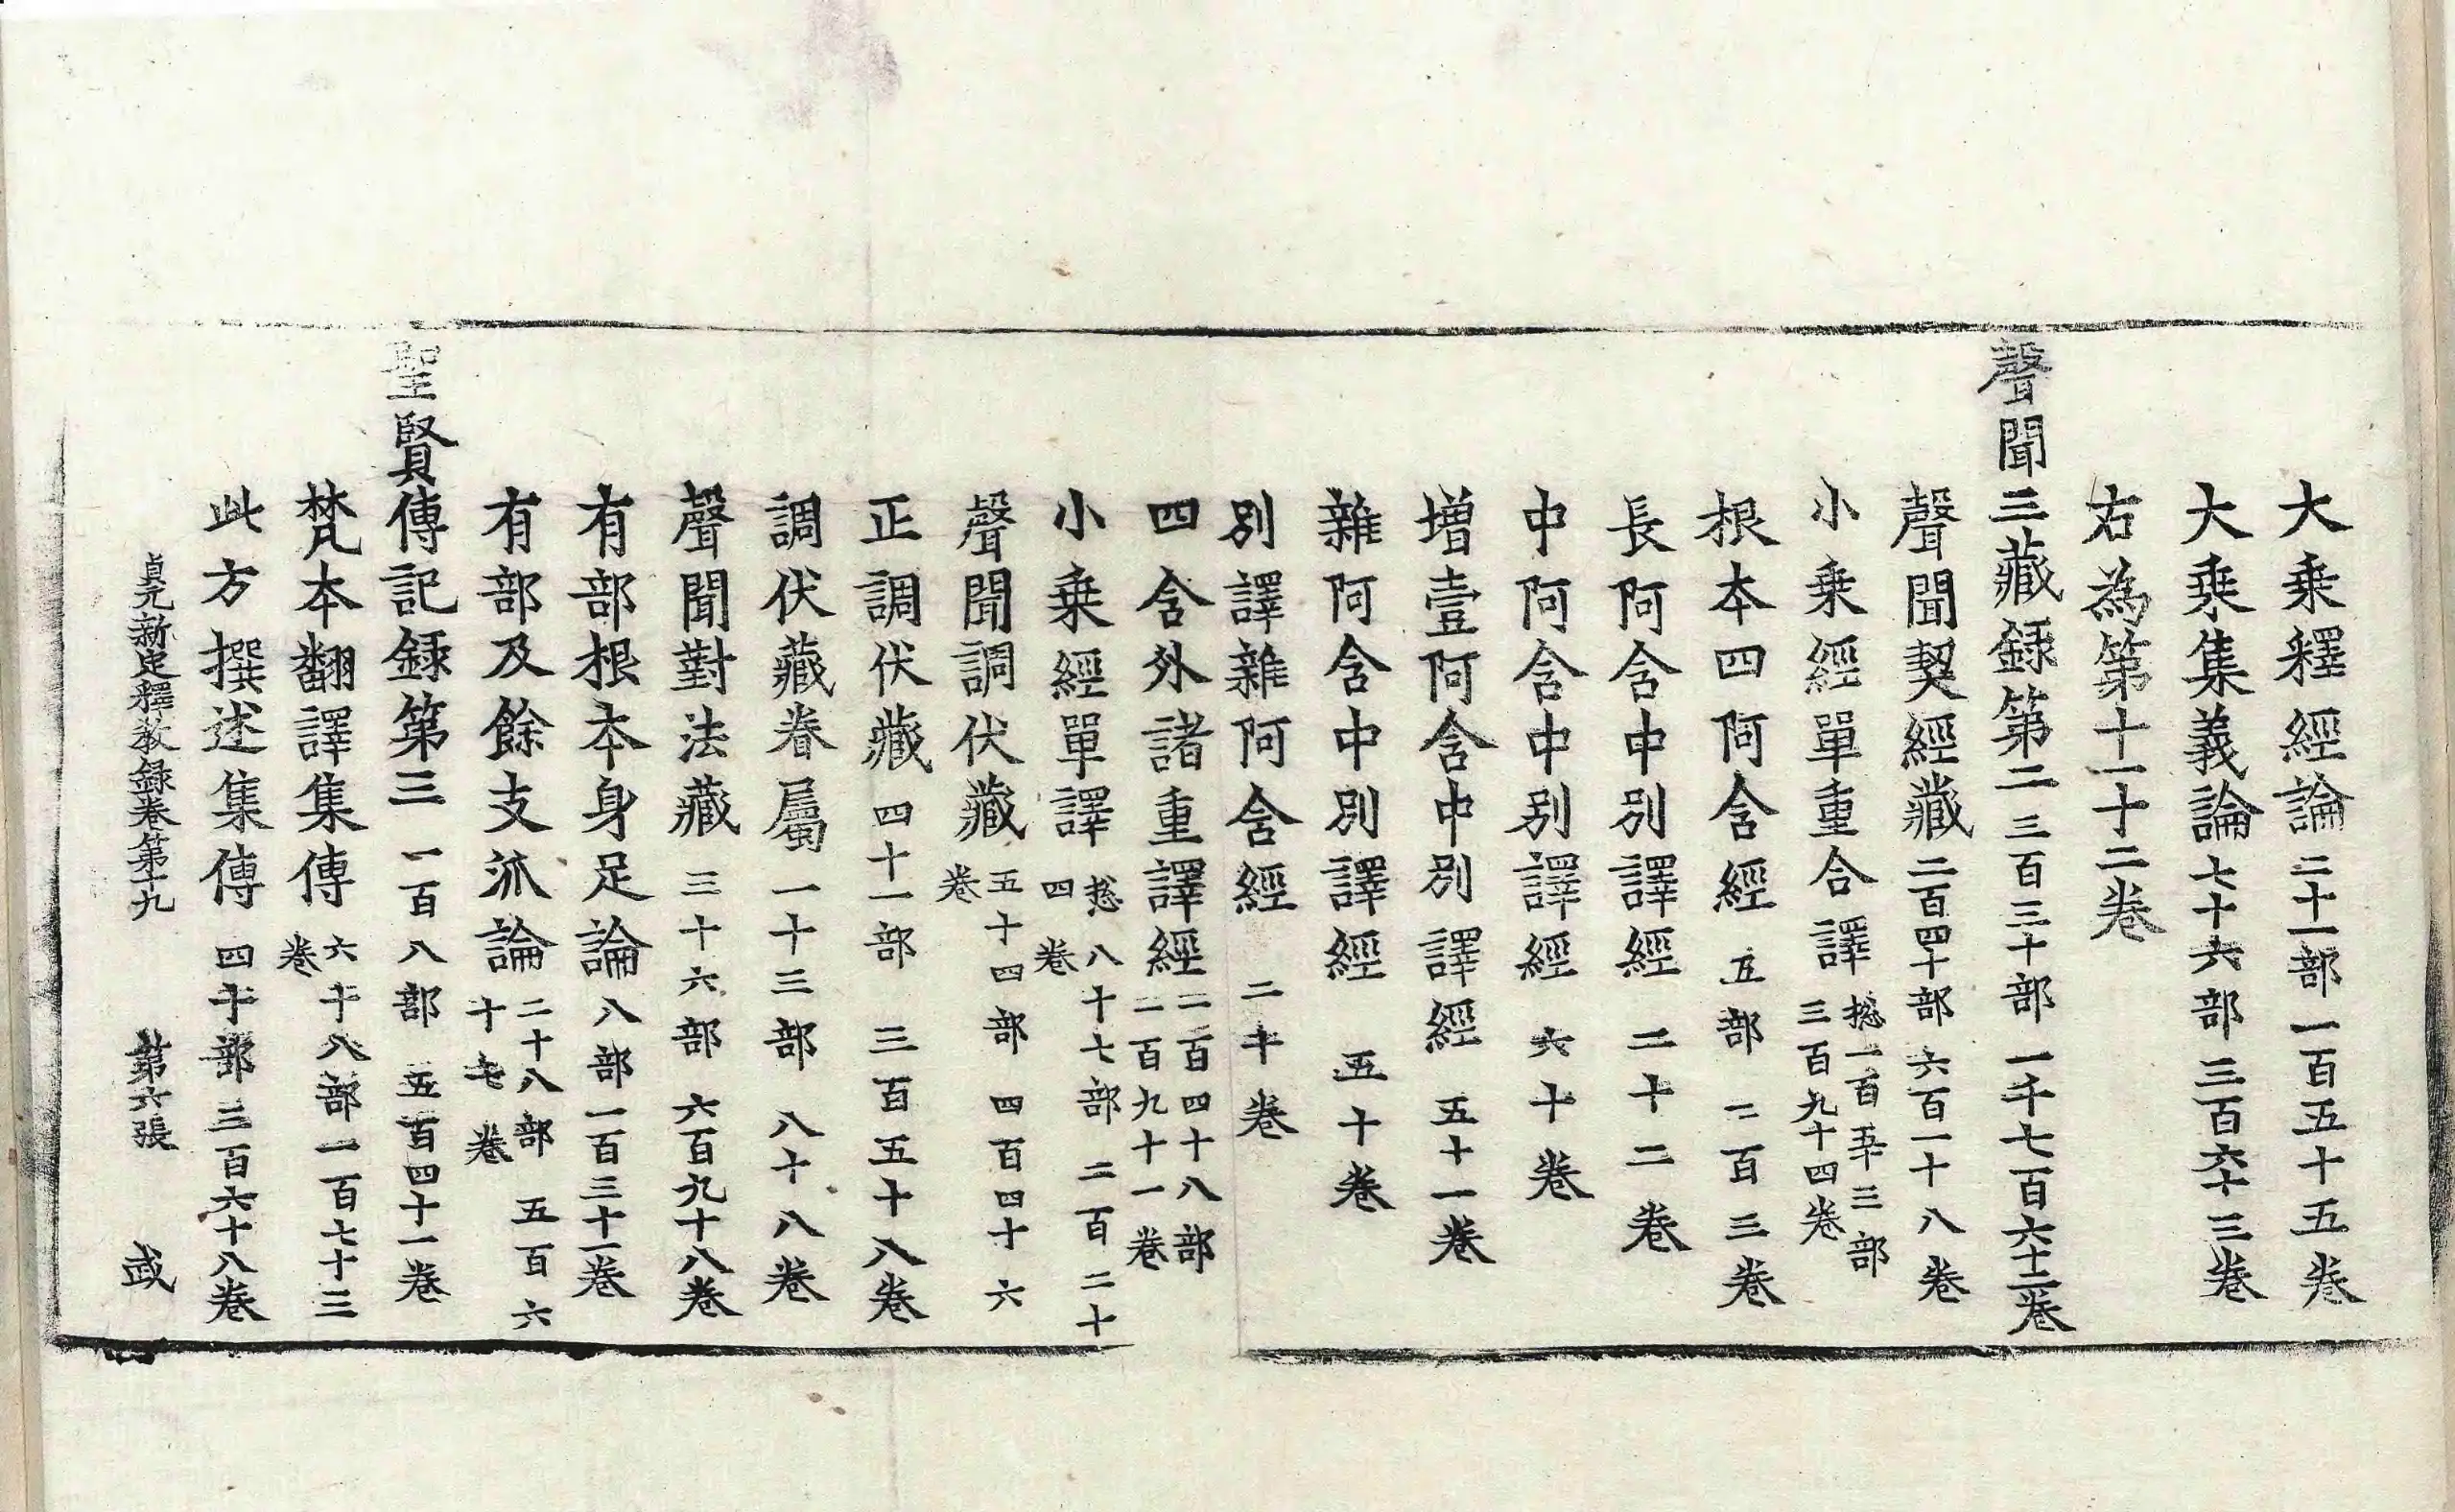 大乗釋經論二十一部一百五十五卷
大乗集義論七十六部三百六十三卷
右為第十一十二卷
聲聞三藏録第二三百三十部一千七百六十二卷
聲聞契經藏二百四十部六百一十八卷
小乗經單重合譯揔一百五十三部三百九十四卷
根本四阿含經五部二百三卷
長阿含中別譯經二十二卷
中阿含中別譯經六十卷
増壹阿含中別譯經五十一卷
雜阿含中別譯經五十卷
別譯雜阿含經二十卷
四含外諸重譯經二百四十八部一百九十一卷
小乗經單譯揔八十七部二百二十四卷
聲聞調伏藏五十四部四百四十六卷
正調伏藏四十一部三百五十八卷
調伏藏眷屬一十三部八十八卷
聲聞對法藏三十六部六百九十八卷
有部根本身足論八部一百三十一卷
有部及餘支派論二十八部五百六十七卷
聖賢傳記録第三一百八部五百四十一卷
梵本翻譯集傳六十八部一百七十三卷
此方撰述集傳四十部三百六十八卷
貞元新定釋教録卷第十九　第六張　或